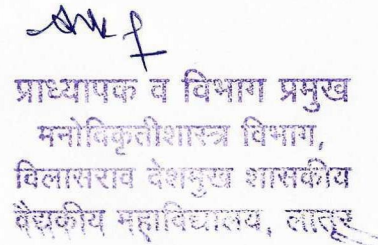 प्राध्यापक व विभाग प्रमुख
मनोविकृतीशास्त्र विभाग,
विलासराव देशमुख शासकीय
वैद्यकीय महाविद्यालय, लातूर